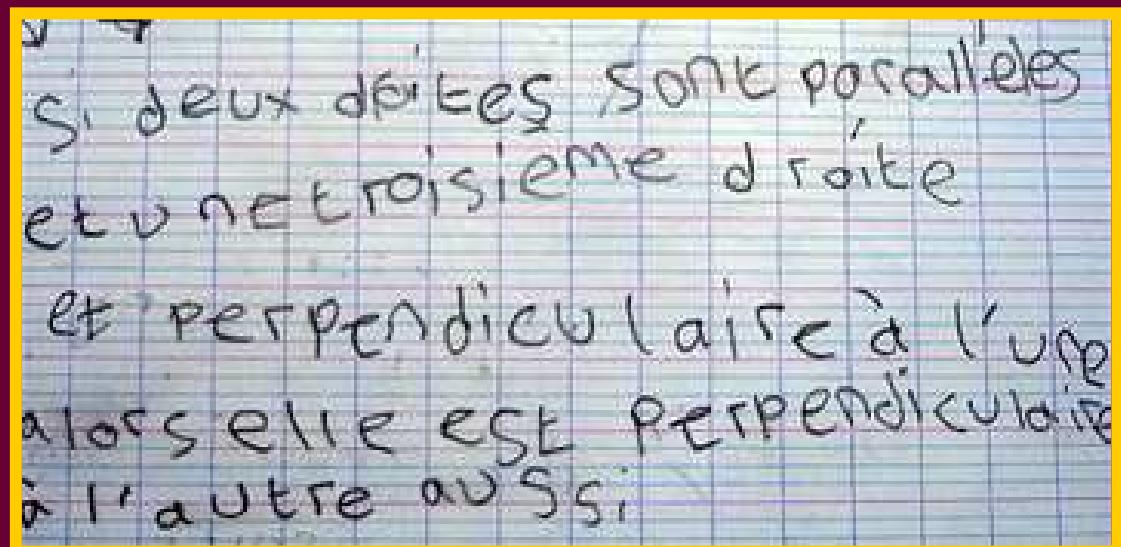 si deux doites sont parallèles
et une troisieme droite
et perpendiculaire à l'une
alors elle est perpendiculaire
à l'autre aussi